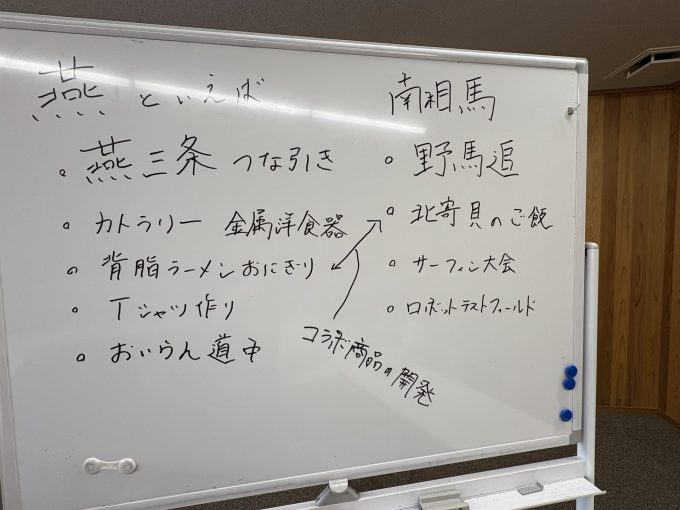 燕といえば
燕三条 つな引き
カトラリー 金属洋食器
背脂ラーメンおにぎり
Tシャツ作り
おいらん道中
南相馬
野馬追
北寄貝のご飯
サーフィン大会
ロボットテストフィールド
コラボ商品の開発